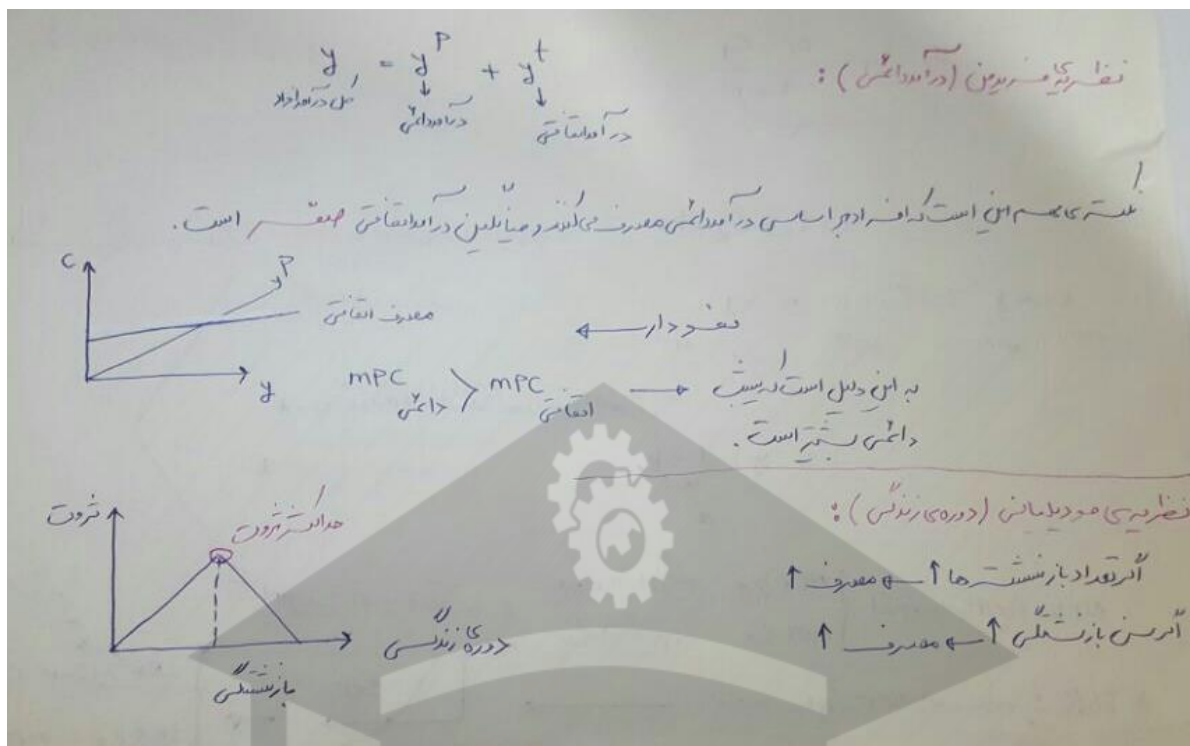 نظریه‌ی فریدمن (درآمد دائمی) :
y = yᴾ + yᵗ
کل درآمد افراد
درآمد دائمی
درآمد اتفاقی
نکته‌ی مهم این است که افراد بر اساس درآمد دائمی مصرف می‌کنند و میانگین درآمد اتفاقی صفر است.
C
P
مصرف اتفاقی
نمودار ←
y
MPC دائمی > MPC اتفاقی → به این دلیل است که شیب
دائمی بیشتر است.
نظریه‌ی مودیلیانی (دوره‌ی زندگی) :
ثروت
حداکثر ثروت
اگر تعداد بازنشسته‌ها ↑ ← مصرف ↑
اگر سن بازنشستگی ↑ ← مصرف ↑
دوره‌ی زندگی
بازنشستگی